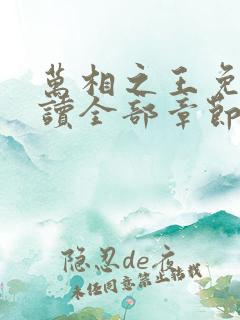 萬相之王免
讀全部章節
隐忍de夜
未经同意禁止转载